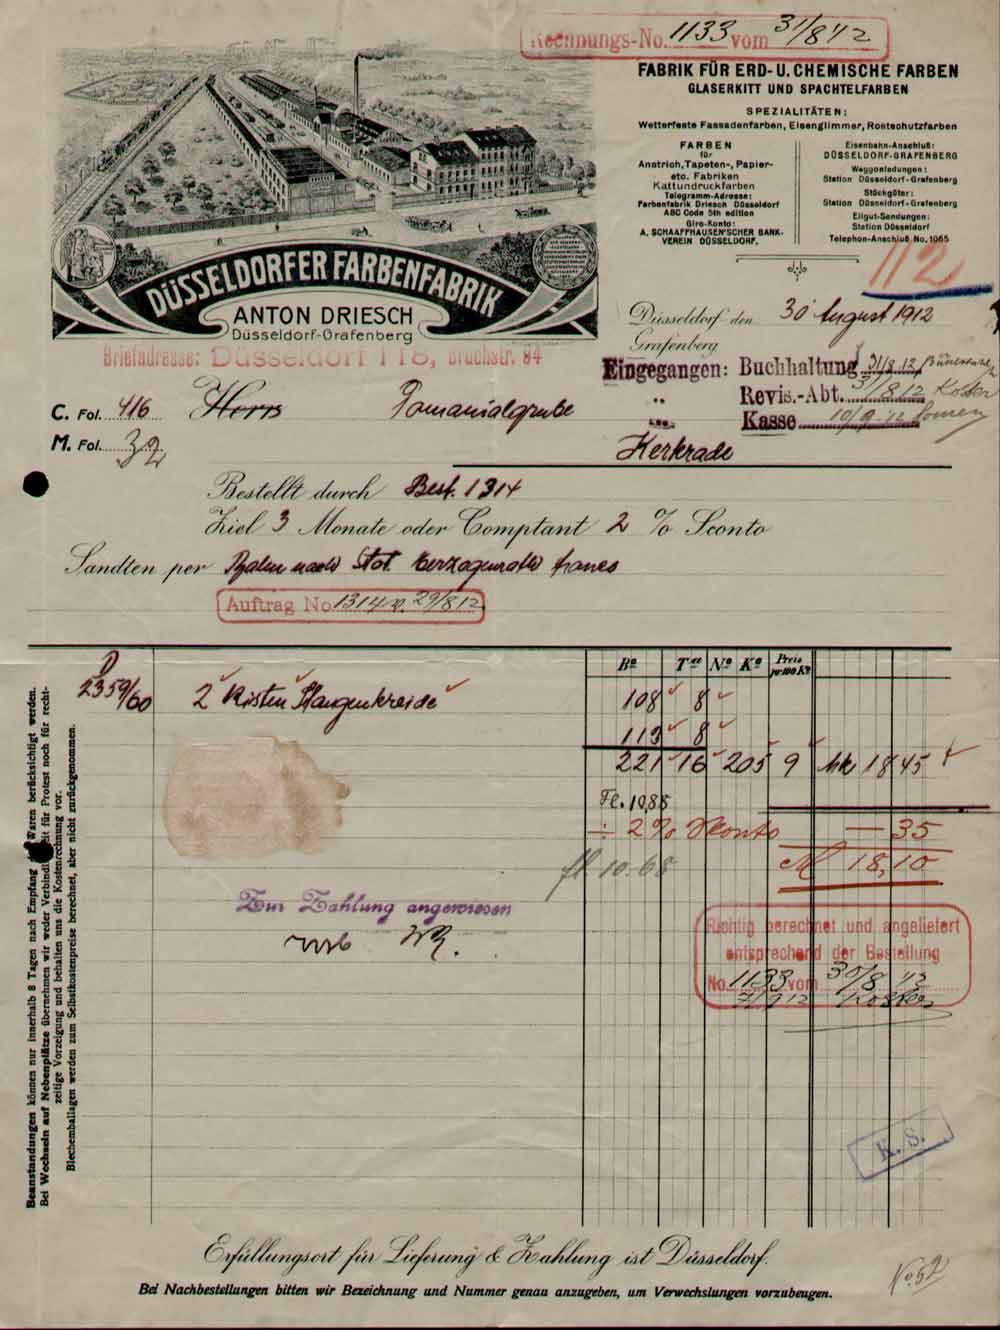 Rechnungs-No. 1133 vom 31/8 12
FABRIK FÜR ERD- U. CHEMISCHE FARBEN
GLASERKITT UND SPACHTELFARBEN
SPEZIALITÄTEN:
Wetterfeste Fassadenfarben, Eisenglimmer, Rostschutzfarben
FARBEN
für
Anstrich, Tapeten-, Papier-
etc. Fabriken
Kattundruckfarben
Telegramm-Adresse:
Farbenfabrik Driesch Düsseldorf
ABC Code 5th edition
Giro-Konto:
A. SCHAAFFHAUSEN'SCHER BANK-
VEREIN DÜSSELDORF.
Eisenbahn-Anschluß:
DÜSSELDORF-GRAFENBERG
Waggonladungen:
Station Düsseldorf-Grafenberg
Stückgüter:
Station Düsseldorf-Grafenberg
Eilgut-Sendungen:
Station Düsseldorf
Telephon-Anschluß No. 1065
112
DÜSSELDORFER FARBENFABRIK
ANTON DRIESCH
Düsseldorf-Grafenberg
Briefadresse: Düsseldorf 118, Bruchstr. 84
Düsseldorf den 30 August 1912
Grafenberg
Eingegangen: Buchhaltung 31/8 12
" Revis.-Abt. 31/8 12
" Kasse 10/9 12
C. Fol. 416
Herrn
M. Fol. 32
Kerkrade
Bestellt durch Best. 1314
Ziel 3 Monate oder Comptant 2 % Sconto
Sandten per Bahn nach Stat. Herzogenrath franco
Auftrag No. 1314 v. 29/8 12
Bo Tra No Ko Preis per 100 Ko
2359/60 2 Kisten Stangenkreide 108 8
113 8
221 16 205 9 Mk 18 45
Fl. 10,85
÷ 2% Skonto — 35
M 18,10
fl. 10.68
Zur Zahlung angewiesen
Richtig berechnet und angeliefert
entsprechend der Bestellung
No. 1133 vom 30/8 12
7/9 12
K. S.
Beanstandungen können nur innerhalb 8 Tagen nach Empfang der Waren berücksichtigt werden.
Bei Wechseln auf Nebenplätze übernehmen wir weder Verbindlichkeit für Protest noch für recht-
zeitige Vorzeigung und behalten uns die Kostenrechnung vor.
Blechemballagen werden zum Selbstkostenpreise berechnet, aber nicht zurückgenommen.
Erfüllungsort für Lieferung & Zahlung ist Düsseldorf.
Bei Nachbestellungen bitten wir Bezeichnung und Nummer genau anzugeben, um Verwechslungen vorzubeugen.
No. 52